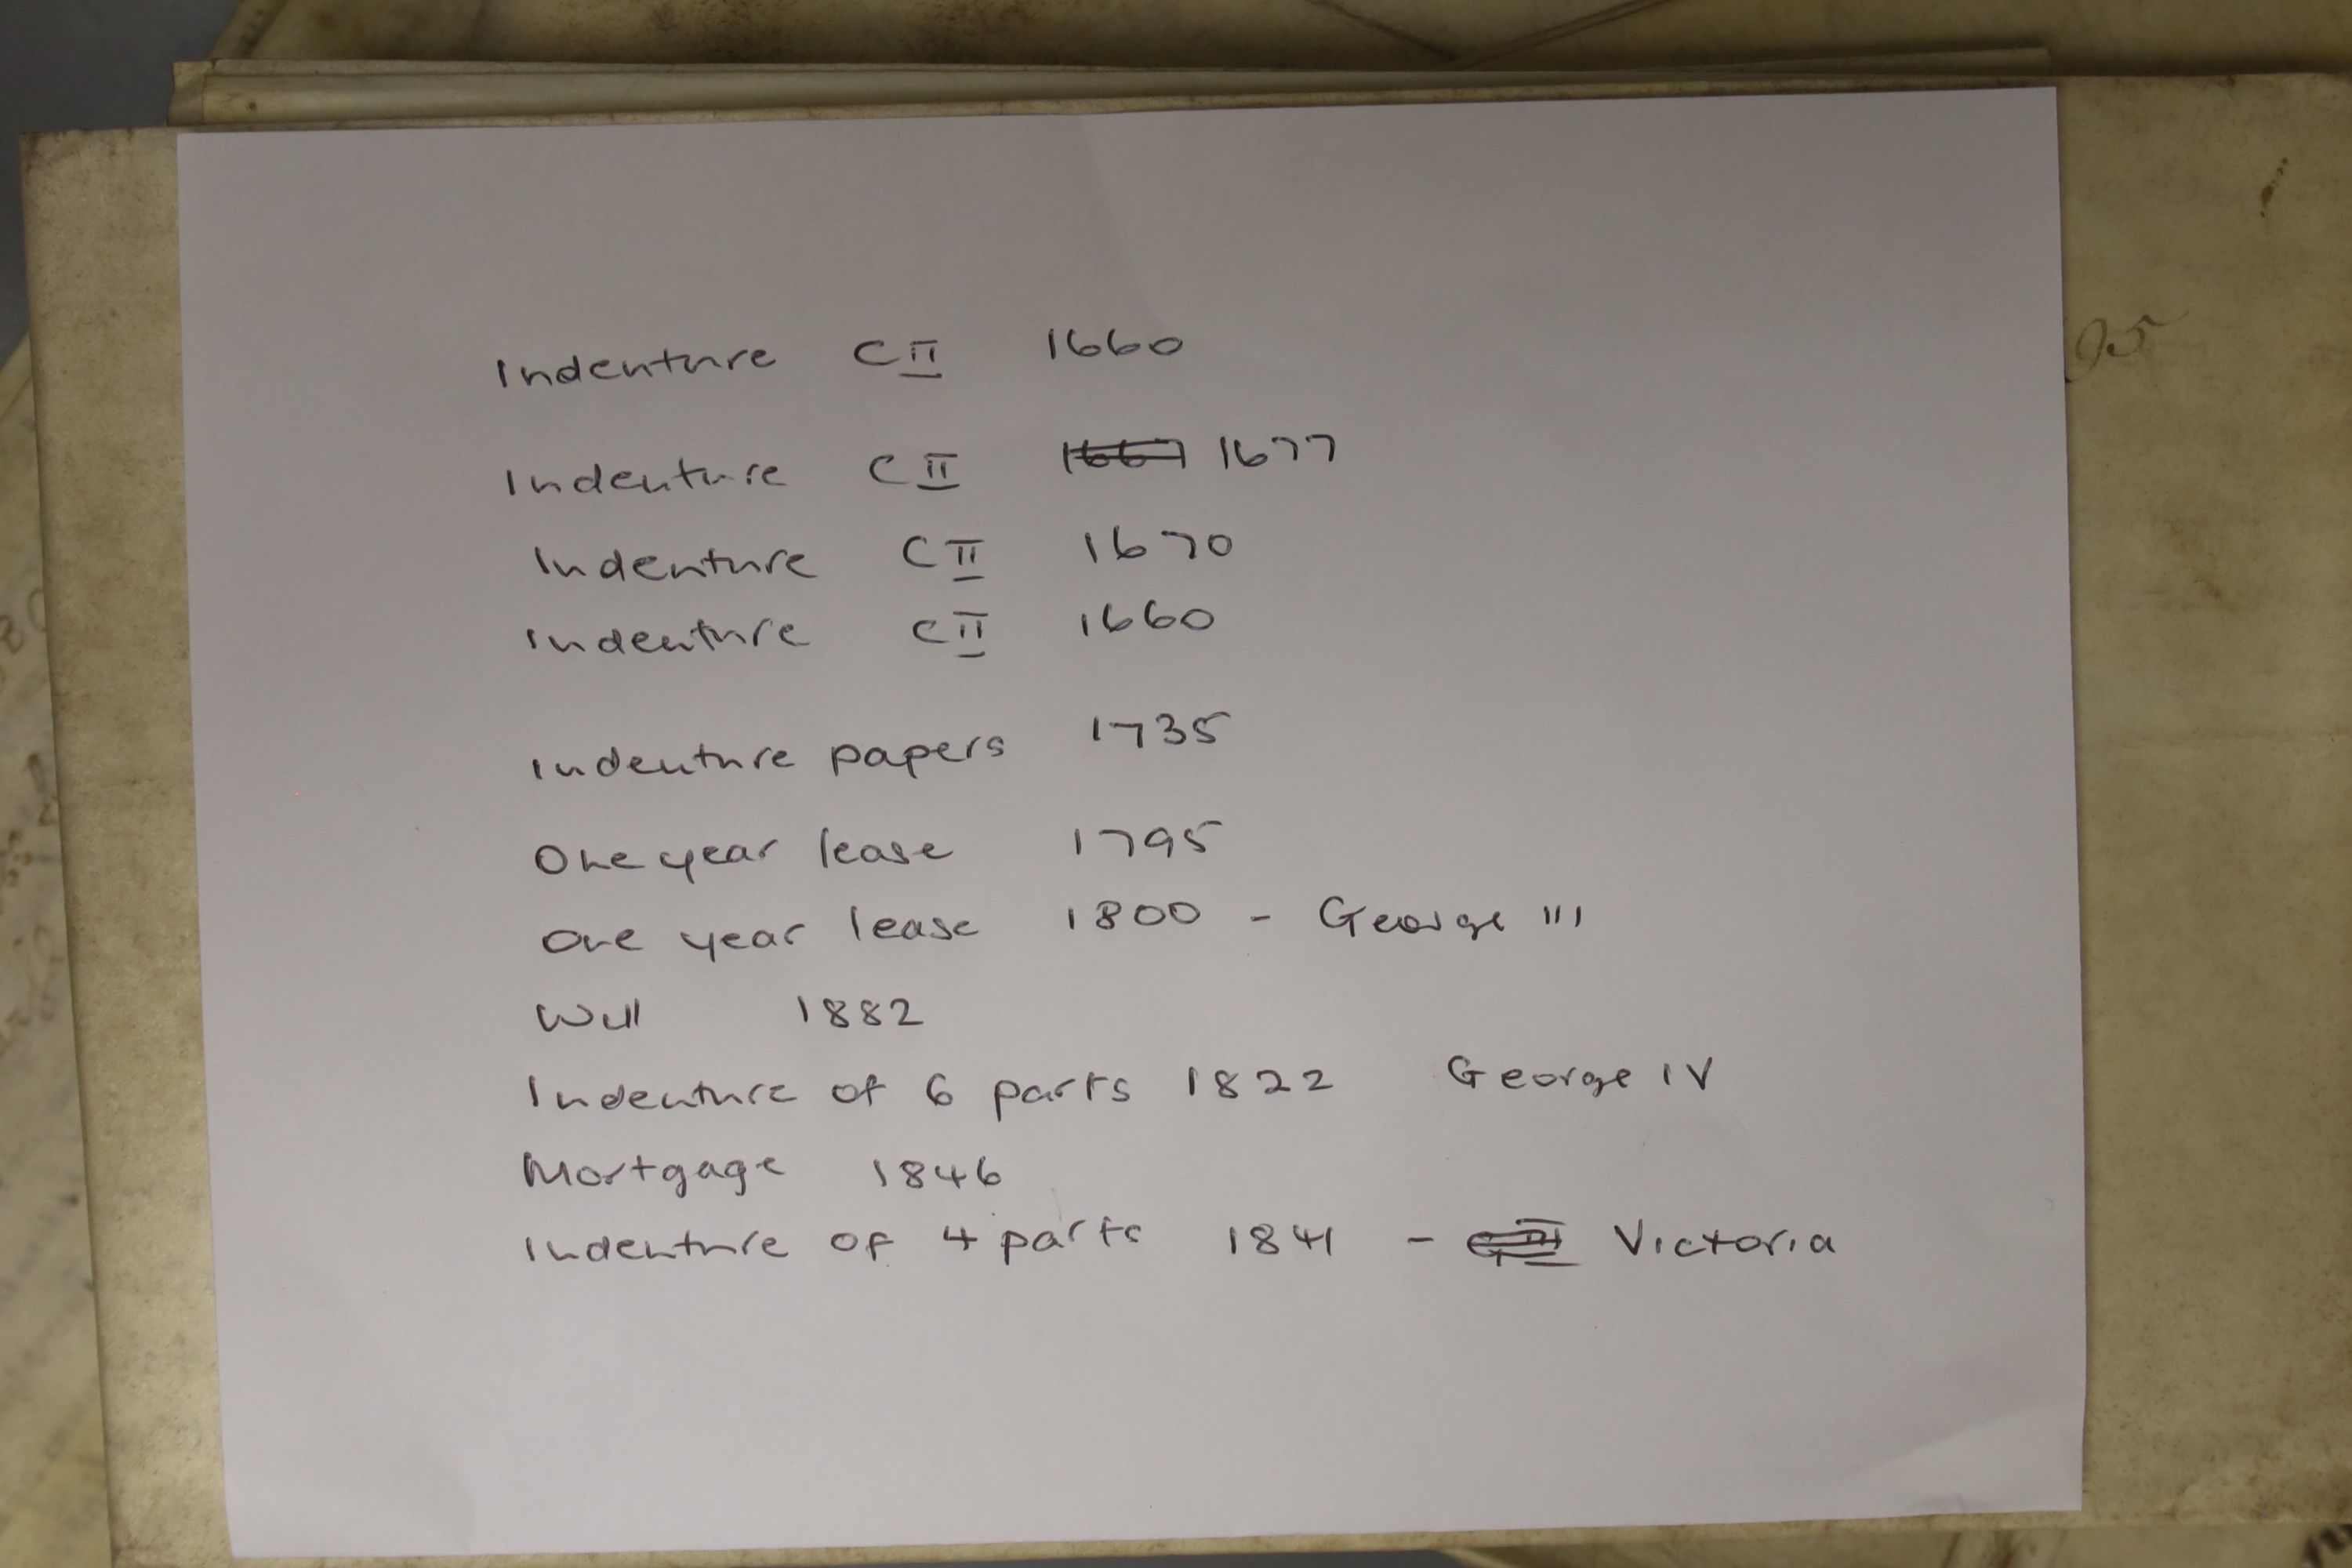 Indenture CII 1660
Indenture CII 1667 1677
Indenture CII 1670
Indenture CII 1660
Indenture papers 1735
One year lease 1795
One year lease 1800 - George III
Will 1882
Indenture of 6 parts 1822 George IV
Mortgage 1846
Indenture of 4 parts 1841 - Victoria
05